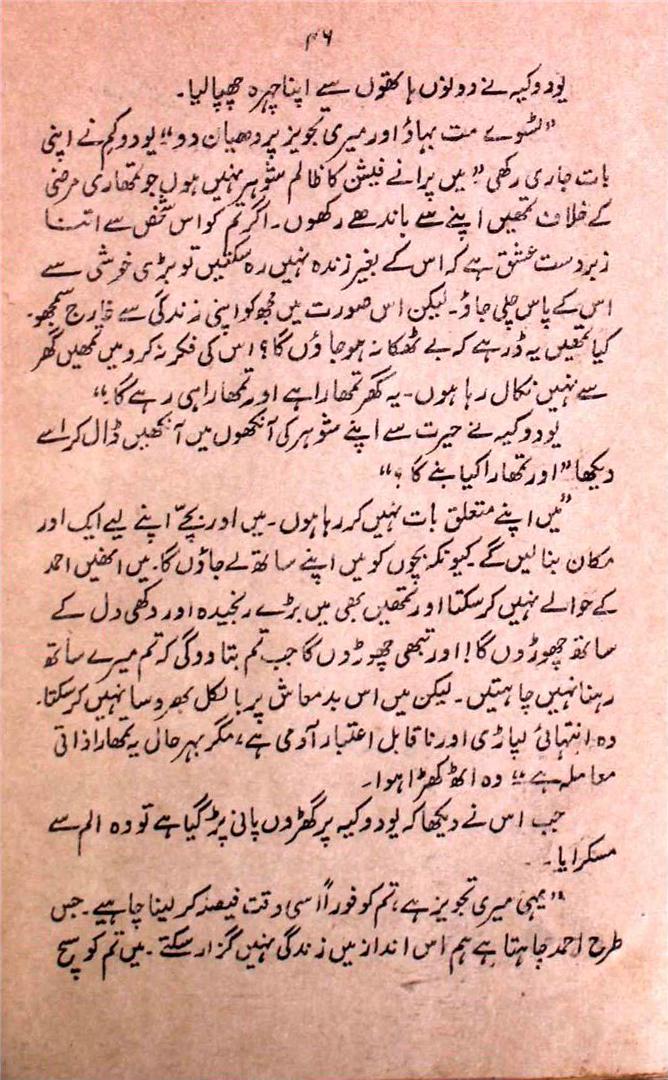 ۴۶
یودوکیہ نے دونوں ہاتھوں سے اپنا چہرہ چھپا لیا۔
”ٹسوے مت بہاؤ اور میری تجویز پر دھیان دو“ یودوکم نے اپنی
بات جاری رکھی ”میں پرانے فیشن کا ظالم شوہر نہیں ہوں جو تمھاری مرضی
کے خلاف تمھیں اپنے سے باندھے رکھوں۔ اگر تم کو اس شخص سے اتنا
زبردست عشق ہے کہ اس کے بغیر زندہ نہیں رہ سکتیں تو بڑی خوشی سے
اس کے پاس چلی جاؤ۔ لیکن اس صورت میں مجھ کو اپنی زندگی سے خارج سمجھو۔
کیا تمھیں یہ ڈر ہے کہ بے ٹھکانہ ہو جاؤں گا؟ اس کی فکر نہ کرو میں تمھیں گھر
سے نہیں نکال رہا ہوں۔ یہ گھر تمھارا ہے اور تمھارا ہی رہے گا۔“
یودوکیہ نے حیرت سے اپنے شوہر کی آنکھوں میں آنکھیں ڈال کر اسے
دیکھا ”اور تمھارا کیا بنے گا؟“
”میں اپنے متعلق بات نہیں کر رہا ہوں۔ میں اور بچے اپنے لیے ایک اور
مکان بنا لیں گے کیونکہ بچوں کو میں اپنے ساتھ لے جاؤں گا۔ میں انھیں احمد
کے حوالے نہیں کر سکتا اور تمھیں بھی میں بڑے رنجیدہ اور دکھی دل کے
ساتھ چھوڑوں گا! اور تبھی چھوڑوں گا جب تم بتا دوگی کہ تم میرے ساتھ
رہنا نہیں چاہتیں۔ لیکن میں اس بدمعاش پر بالکل بھروسا نہیں کر سکتا۔
وہ انتہائی لپاڑی اور ناقابل اعتبار آدمی ہے، مگر بہرحال یہ تمھارا ذاتی
معاملہ ہے“ وہ اٹھ کھڑا ہوا۔
جب اس نے دیکھا کہ یودوکیہ پر گھڑوں پانی پڑ گیا ہے تو وہ الم سے
مسکرایا۔
”یہی میری تجویز ہے، تم کو فوراً اسی وقت فیصلہ کر لینا چاہیے۔ جس
طرح احمد چاہتا ہے ہم اس انداز میں زندگی نہیں گزار سکتے۔ میں تم کو سچ